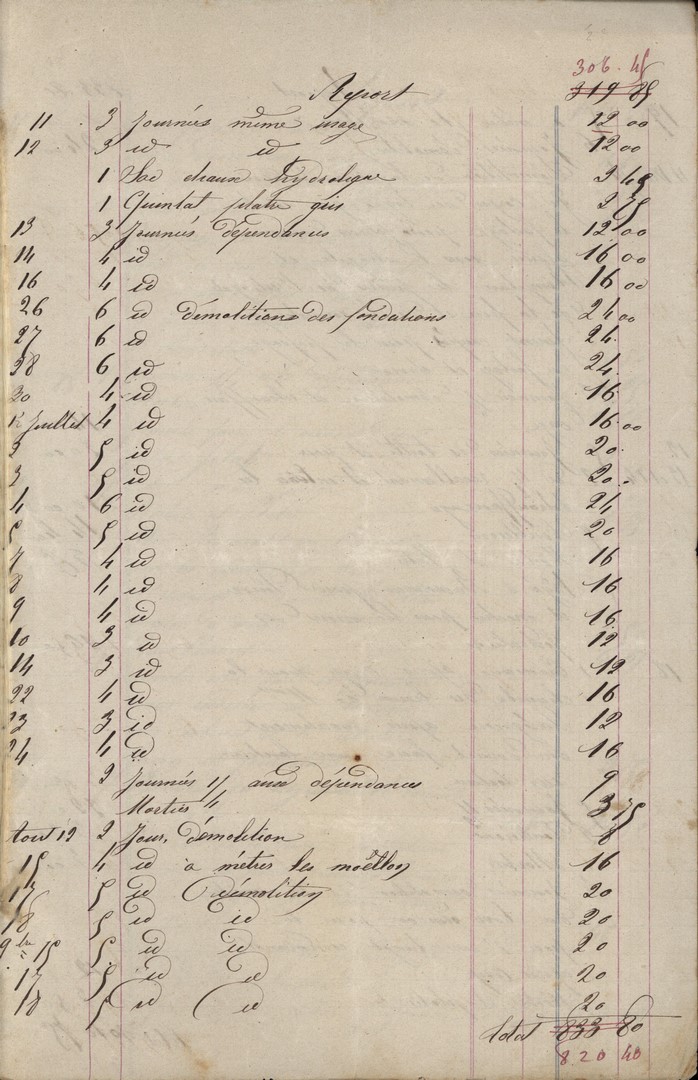 306. 45
Report 319 85
11 3 Journées même usage 12 00
12 3 id id 12 00
1 Sac chaux hydrolique 2 45
1 Quintal platre gris 2 75
13 3 Journés dépendances 12 00
14 4 id 16 00
16 4 id 16 00
26 6 id démolitions des fondations 24 00
27 6 id 24.
28 6 id 24.
30 4 id 16
1er Juillet 4 id 16.00
2 5 id 20.
3 5 id 20.
4 6 id 24
5 5 id 20
7 4 id 16
8 4 id 16
9 4 id 16
10 3 id 12
14 3 id 12
22 4 id 16
23 3 id 12
24 4 id 16
2 Journées 1/4 aux dépendances 9
Mortier 3 75
Aout 12 2 Jour, démolition 8
15 4 id a métrer les moëllon 16
17 5 id démolition 20
18 5 id id 20
9bre 15 5 id id 20
17 5 id id 20
18 5 id id 20
total 833 80
820 40